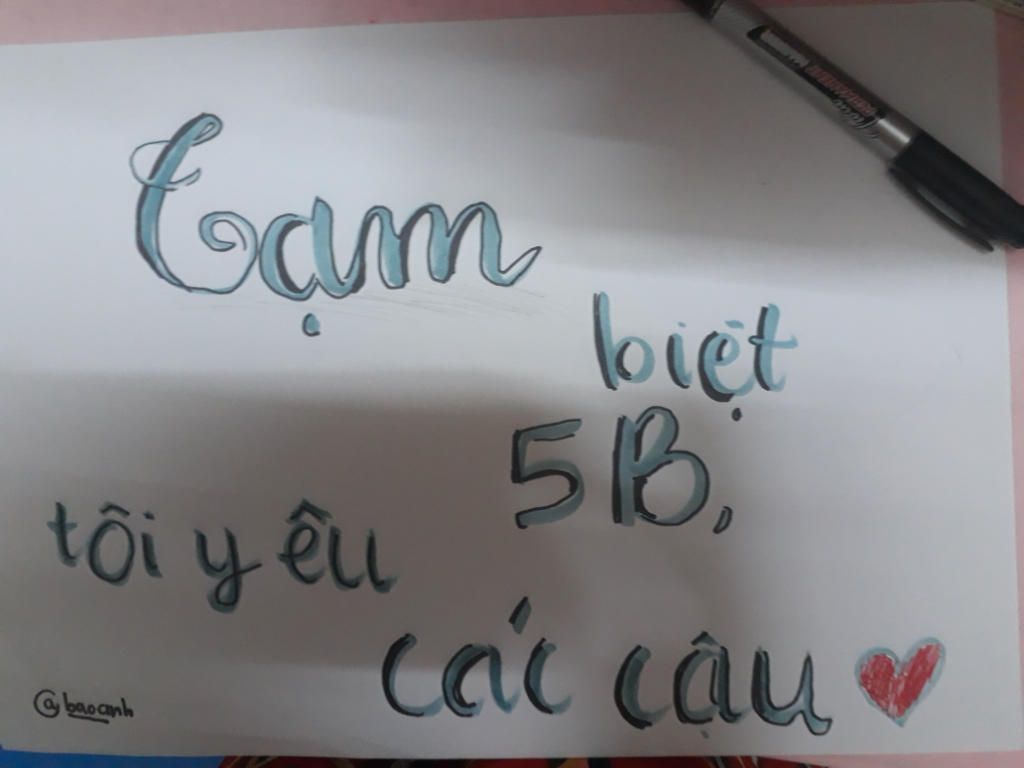 Tạm
biệt
5B,
tôi yêu
các cậu
@baoanh